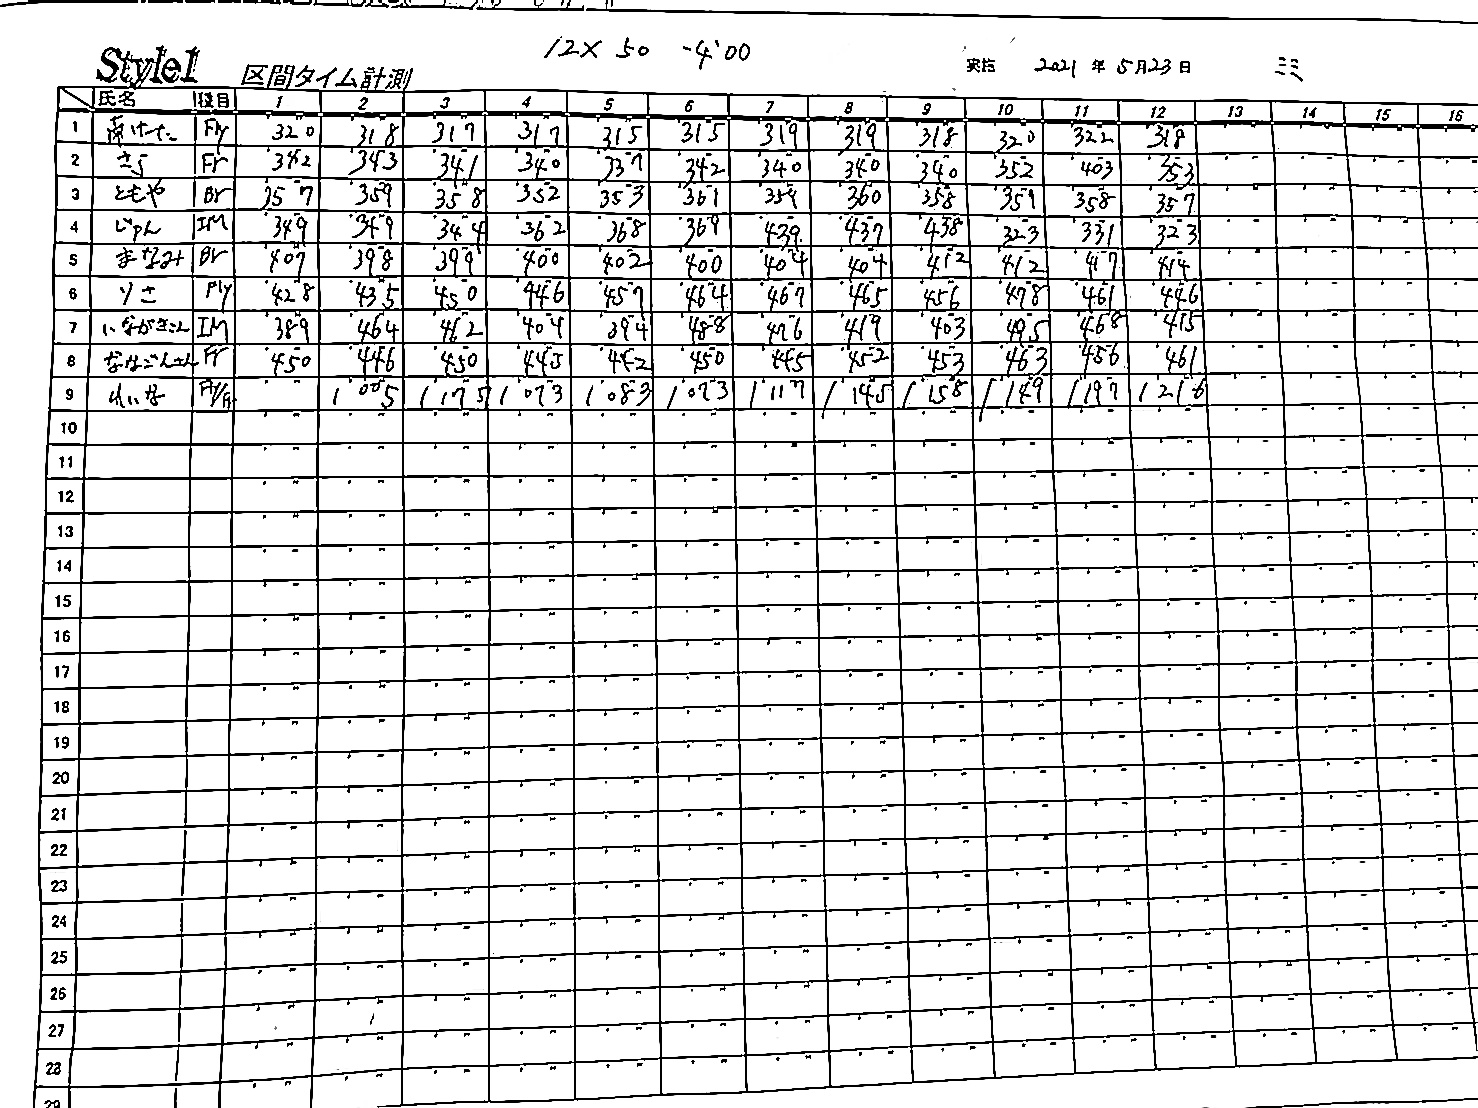 12× 50 -4'00
Style1 区間タイム計測 実施 2021 年 5月23日
氏名 種目 1 2 3 4 5 6 7 8 9 10 11 12 13 14 15 16
1 Fly 320 318 317 317 315 315 319 319 318 320 322 318
2 さら Fr 342 343 341 340 337 342 340 340 340 352 403 353
3 ともや Br 357 359 358 352 353 361 359 360 358 359 358 357
4 じゅん IM 349 349 344 362 368 369 439 437 438 323 331 323
5 まなみ Br 407 398 399 400 402 400 404 404 412 412 417 414
6 りさ Fly 428 435 450 446 457 464 467 465 456 478 461 446
7 いながきさん IM 389 464 462 404 394 488 476 419 403 495 468 415
8 ななごんさん Fr 450 446 450 445 442 450 445 452 453 463 456 461
9 れいな Fly/Fr 1'005 1'175 1'073 1'083 1'073 1'117 1'145 1'158 1'149 1'197 1'216
10
11
12
13
14
15
16
17
18
19
20
21
22
23
24
25
26
27
28
29